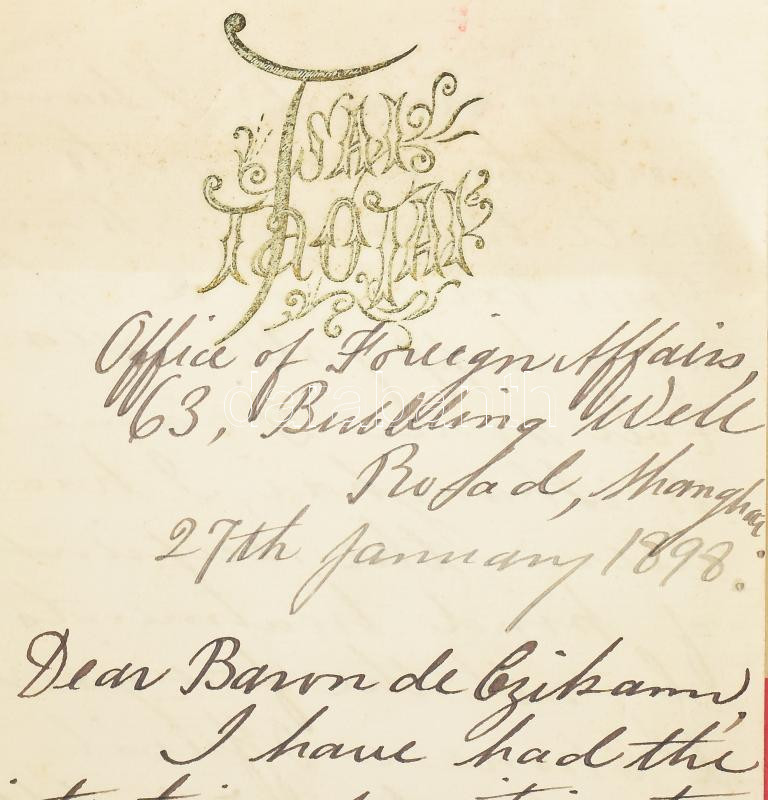 TSAK
THOTAK
Office of Foreign Affairs,
63, Bubbling Well
Road, Shanghai.
27th January 1898.
Dear Baron de Czikann,
I have had the
darabanth